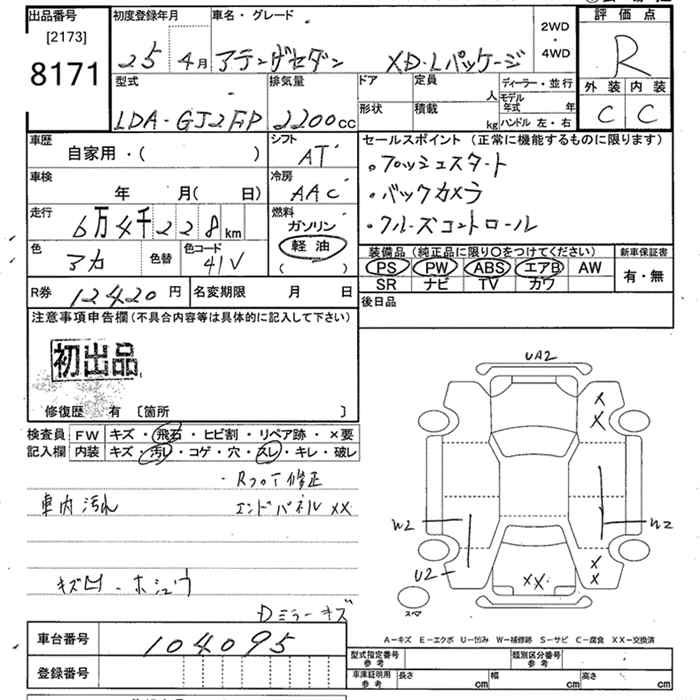 出品番号
[2173]
8171
初度登録年月
25年4月
車名・グレード
アテンザセダン XD・Lパッケージ
2WD
・
4WD
評価点
R
外装 内装
C C
型式
LDA-GJ2FP
排気量
2200cc
ドア
形状
定員 人
積載 kg
ディーラー・並行
モデル年式 年
ハンドル 左・右
車歴
自家用・( )
シフト
AT
車検
年 月( 日)
冷房
AAC
走行
6万4千228km
燃料
ガソリン
軽油
( )
色
アカ
色替
色コード
41V
R券 12420円
名変期限 月 日
セールスポイント(正常に機能するものに限ります)
・プッシュスタート
・バックカメラ
・クルーズコントロール
装備品(純正品に限り〇をつけてください)
PS PW ABS エアB AW
SR ナビ TV カワ
新車保証書
有・無
後日品
注意事項申告欄(不具合内容等は具体的に記入して下さい)
初出品
修復歴 有 [箇所 ]
検査員
記入欄
FW キズ・飛石・ヒビ割・リペア跡・×要
内装 キズ・汚レ・コゲ・穴・スレ・キレ・破レ
・Rフロア修正
車内汚れ
エンドパネルXX
キズ凹・ホシュウ
Dミラーキズ
UA2
X
X
W2
W2
U2
XX
X
X
スペア
A-キズ E-エクボ U-凹み W-補修跡 S-サビ C-腐食 XX-交換済
車台番号
104095
登録番号
型式指定番号
参考
類別区分番号
参考
車庫証明用
参考
長さ cm
幅 cm
高さ cm